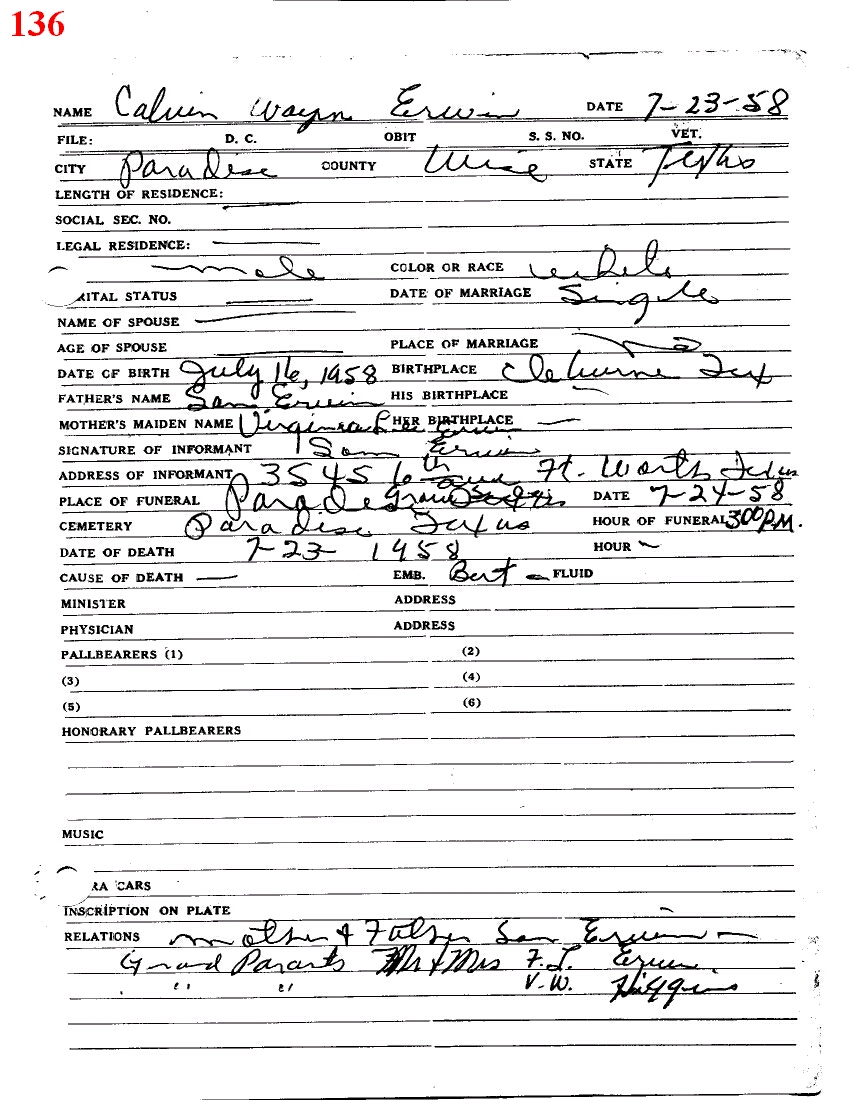 136
NAME Calvin Wayn Erwin DATE 7-23-58
FILE: D. C. OBIT S. S. NO. VET.
CITY Paradise COUNTY Wise STATE Texas
LENGTH OF RESIDENCE:
SOCIAL SEC. NO.
LEGAL RESIDENCE:
male COLOR OR RACE white
RITAL STATUS DATE OF MARRIAGE Single
NAME OF SPOUSE
AGE OF SPOUSE PLACE OF MARRIAGE
DATE OF BIRTH July 16, 1958 BIRTHPLACE Cleburne Tex
FATHER'S NAME Sam Erwin HIS BIRTHPLACE
MOTHER'S MAIDEN NAME Virginia Lee Erwin HER BIRTHPLACE
SIGNATURE OF INFORMANT Sam Erwin
ADDRESS OF INFORMANT 3545 6th Ft. Worth Texas
PLACE OF FUNERAL Paradise Grave DATE 7-24-58
CEMETERY Paradise Texas HOUR OF FUNERAL 3:00 P.M.
DATE OF DEATH 7-23-1958 HOUR
CAUSE OF DEATH EMB. Bert FLUID
MINISTER ADDRESS
PHYSICIAN ADDRESS
PALLBEARERS (1) (2)
(3) (4)
(5) (6)
HONORARY PALLBEARERS
MUSIC
RA CARS
INSCRIPTION ON PLATE
RELATIONS mother & Father Sam Erwin
Grand Parants Mr & Mrs F. L. Erwin
" " " V.W. Higgins